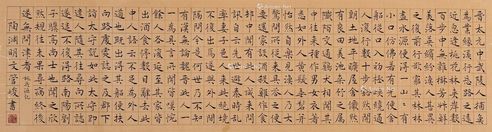 晉太元中武陵人捕魚
為業緣溪行忘路之遠
近忽逢桃花林夾岸數
百步中無雜樹芳草鮮
美落英繽紛漁人甚異
之復前行欲窮其林林
盡水源便得一山山有
小口仿佛若有光便舍
船從口入初極狹才通
人復行數十步豁然開
朗土地平曠屋舍儼然
有良田美池桑竹之屬
阡陌交通雞犬相聞其
中往來種作男女衣著
悉如外人黃髮垂髫並
怡然自樂見漁人乃大
驚問所從來具答之便
要還家設酒殺雞作食
村中聞有此人咸來問
訊自云先世避秦時亂
率妻子邑人來此絕境
不復出焉遂與外人間
隔問今是何世乃不知
有漢無論魏晉此人一
一為具言所聞皆嘆惋
餘人各復延至其家皆
出酒食停數日辭去此
中人語云不足為外人
道也既出得其船便扶
向路處處誌之及郡下
詣太守說如此太守即
遣人隨其往尋向所誌
遂迷不復得路南陽劉
子驥高尚士也聞之欣
然規往未果尋病終後
遂無問津者
陶淵明 管峻書